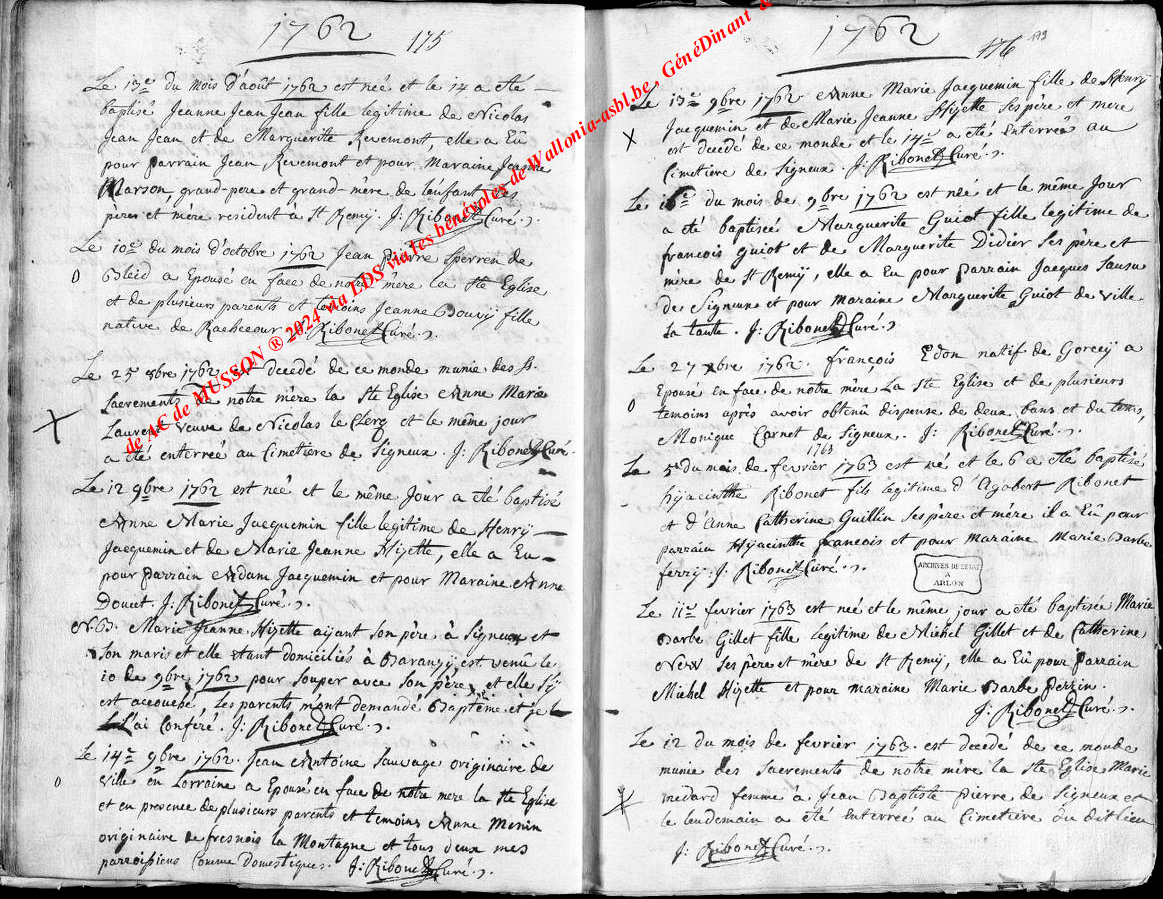 1762 175
Le 13e du mois d'août 1762 est née et le 14 a eté
baptisé Jeanne Jean Jean fille legitime de Nicolas
Jean Jean et de Marguerite Revemont, elle a Eû
pour parrain Jean Revemont et pour Maraine Jeanne
Marson grand-pere et grand-mère de l'enfant Ses
père et mère resident à St Remy. J: Ribonet Curé.
Le 10e du mois d'octobre 1762 Jean pierre Sperren de
0 Bleid a Epousé en face de notre mere la Ste Eglise
et de plusieurs parents et temoins Jeanne Bourij fille
native de Rachecour J: Ribonet Curé.
Le 25 8bre 1762 est decedé de ce monde munie des SS.
Sacrements de notre mère la Ste Eglise Anne Marie
X Laurent veuve de Nicolas le Clerq et le même jour
a eté enterreé au Cimetière de Signeux. J: Ribonet Curé.
Le 12 9bre 1762 est neé et le même Jour a été baptisé
Anne Marie Jacquemin fille legitime de Henrij
Jacquemin et de Marie Jeanne Hizette, elle a Eu
pour parrain Adam Jacquemin et pour Maraine Anne
Doucet. J: Ribonet Curé.
N.B. Marie Jeanne Hizette aijant son père à Signeux et
Son maris et elle etant domiciliés à Baranzij est venû le
10 de 9bre 1762 pour souper avec son père, et elle S'ij
est accouché, les parents m'ont demandé Baptême et je
L'ai conferé. J: Ribonet Curé.
Le 14e 9bre 1762. Jean Antoine Sauvage originaire de
0 Ville en Lorraine a Epousé en face de notre mere la Ste Eglise
et en presence de plusieurs parents et temoins Anne Menin
originaire de fresnois la Montagne et tous deux mes
parroissiens Comme domestiques. J: Ribonet Curé.
1762 176
Le 13e 9bre 1762 Anne Marie Jacquemin fille de Henrij
X Jacquemin et de Marie Jeanne Hizette Ses pere et mere
est decedé de ce monde et le 14e a eté Enterreé au
Cimetière de Signeux J: Ribonet Curé.
Le 16e du mois de 9bre 1762 est neé et le même Jour
a été baptisée Marguerite Guiot fille legitime de
francois Guiot et de Marguerite Didier Ses père et
mère de St Remij, elle a Eu pour parrain Jacques
de Signeux et pour maraine Marguerite Guiot de Ville
Sa tante. J: Ribonet Curé.
Le 27 xbre 1762. françois Edon natif de Gorceij a
Epousé en face de notre mère La Ste Eglise et de plusieurs
0 temoins après avoir obtenû dispense de deux bans et du tems,
Monique Cornet de Signeux. J: Ribonet Curé.
1763
Le 5e du mois de fevrier 1763 est né et le 6 a eté baptisé
hijacinthe Ribonet fils legitime d'Agobert Ribonet
et d'Anne Catherine Guillin Ses père et mère il a Eû pour
parrain Hyacinthe francois et pour Maraine Marie Barbe
ferrij. J: Ribonet Curé.
ARCHIVES DE L'ETAT
A
ARLON
Le 11e fevrier 1763 est né et le même jour a été baptisée Marie
Barbe Gillet fille legitime de Michel Gillet et de Catherine
New Ses père et mere de St Remij, elle a Eû pour parrain
Michel Hizette et pour maraine Marie Barbe perzin.
J: Ribonet Curé.
Le 12 du mois de fevrier 1763. est decedé de ce monde
munie des Sacrements de notre mère la Ste Eglise Marie
X medard femme a Jean Baptiste pierre de Signeux et
le lendemain a été Enterreé au Cimetière du dit lieu
J: Ribonet Curé.
de AC de MUSSON ® 2024 via LDS via les bénévoles de Wallonia-asbl.be, GénéDinant &